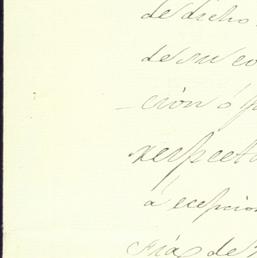 de dicho
de su co
ción ó p
respecti
á ecepcion
rias de